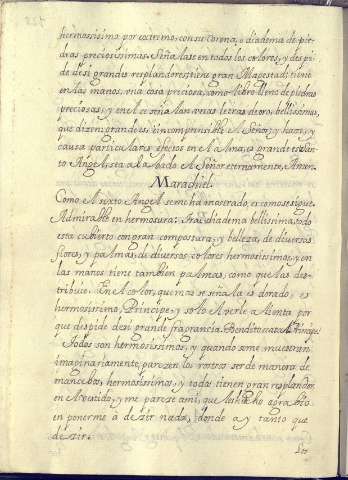 hermosissima por extremo, con su corona, o diadema de pie-
dras preciosissimas. Señalase en todos los colores, y despi-
de de si grandes resplandores; tiene gran Magestad; tiene
en las manos una cosa preciosa, como lebro lleno de piedras
preciosas, y en el se señalan unas letras de oro, bellissimas,
que dizen; grande es, e incomprensible el Señor; y haze, y
causa particulares efectos en el Alma; es grande este San-
to Angel; sea alabado el Señor eternamente, Amen.
Maradiel.
Como el sixto Angel se me ha mostrado, es como se sigue.
Admirable en hermosura: trae diadema bellissima, todo
esta cubierto con gran compostura, y belleza, de diversas
flores, y palmas, de diversos colores hermosissimos, y en
las manos tiene tambien palmas, como que las des-
tribuie. En el color, que mas se señala es dorado, es
hermosissimo Principe, y solo el verle alienta por
que despide de si grande fragrancia. Bendito sea tal Principe!
Todos son hermosissimos, y quando se me muestran
imaginariamente, parezen los rostros ser de manera de
mancebos, hermosissimos, y todos tienen gran resplandor
en el vestido, y me pareze a mi, que les hecho agrabio
en ponerme a dezir nada, donde ay tanto que
dezir.
Los